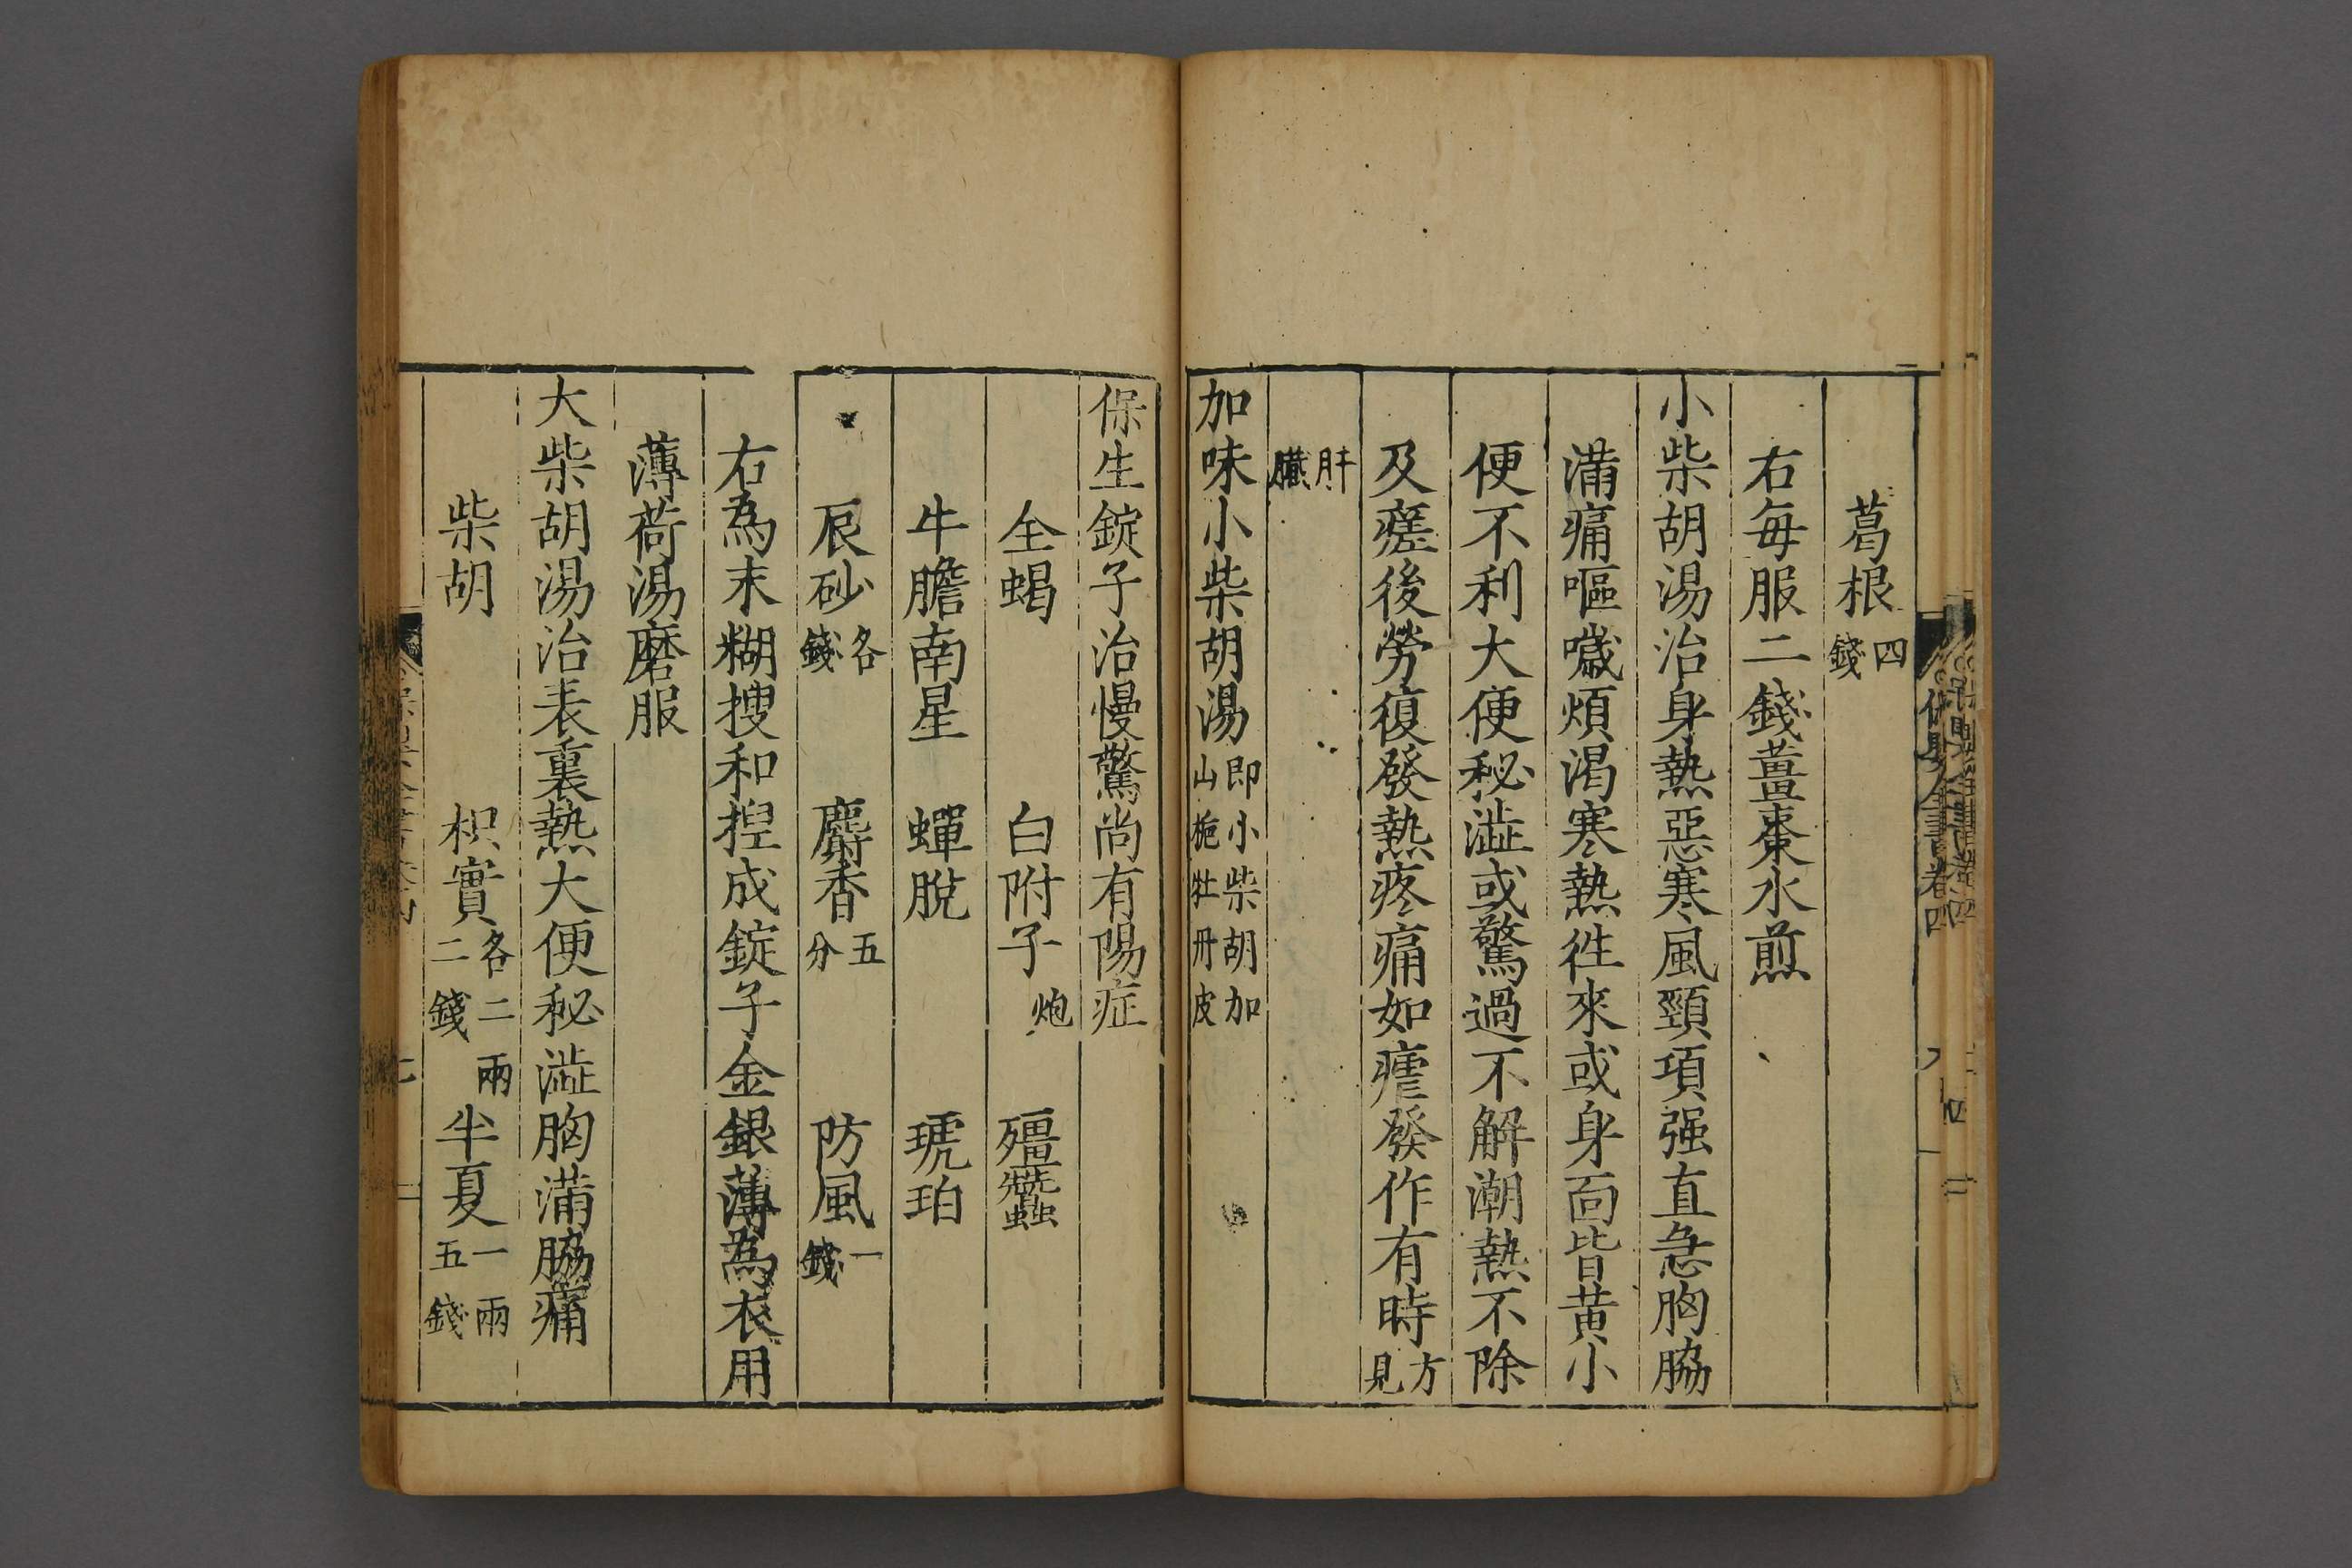 葛根四錢
右每服二錢薑棗水煎
小柴胡湯治身熱惡寒風頸項强直急胸脇
滿痛嘔噦煩渴寒熱徃來或身面皆黄小
便不利大便秘澁或驚過不解潮熱不除
及瘥後勞復發熱疼痛如瘧發作有時方見
肝臟
加味小柴胡湯即小柴胡加山梔牡丹皮
保生錠子治慢驚尚有陽症
全蝎 白附子炮 殭蠶
牛膽南星 蟬脫 琥珀
辰砂各錢 麝香五分 防風一錢
右為末糊搜和揑成錠子金銀薄為衣用
薄荷湯磨服
大柴胡湯治表裏熱大便秘澁胸滿脇痛
柴胡 枳實各二兩二錢 半夏一兩五錢